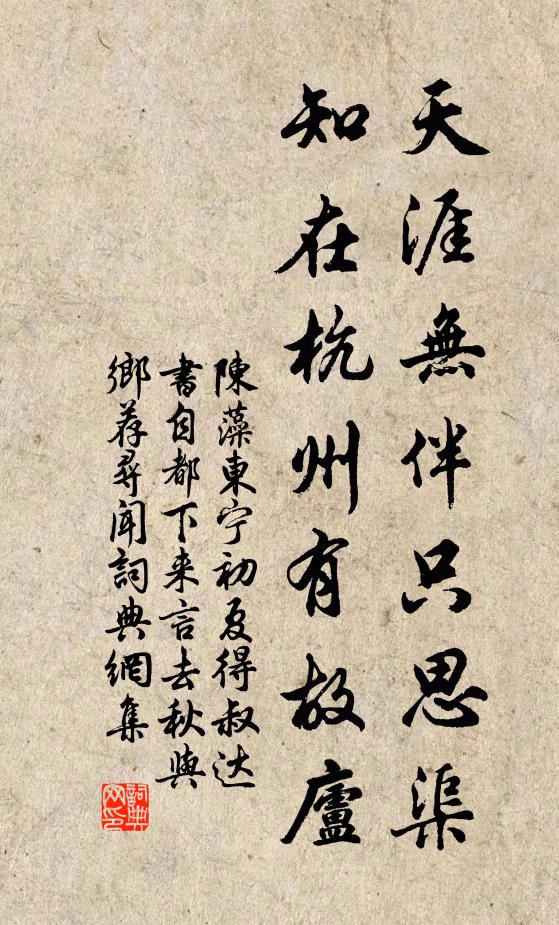 天涯無伴只思渠
知在杭州有故廬
陳藻東宁初夏得叔达
書自都下来言去秋與
鄉荐尋闻詞典網集
詞典
网印